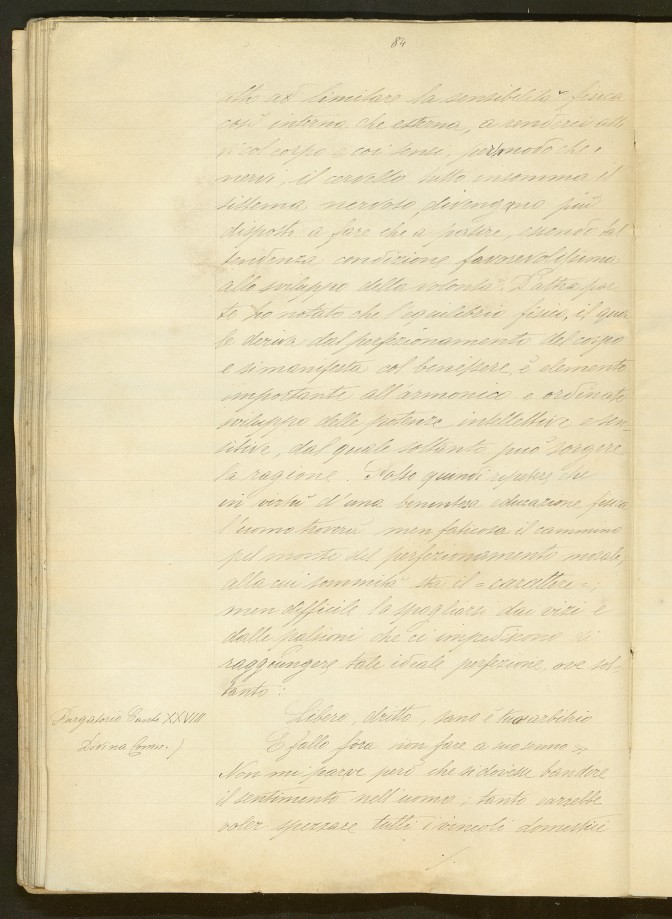 84
atto ad limitare la sensibilità fisica
così interna che esterna, a renderci
col corpo e coi sensi, per modo che i
nervi, il cervello tutto insomma il
sistema nervoso, divengano più
disposti a fare che a patire, essendo tal
tendenza condizione favorevolissima
allo sviluppo della volontà. D'altra par-
te ho notato che l'equilibrio fisico, il qua-
le deriva dal perfezionamento del corpo
e si manifesta col benessere, è elemento
importante all'armonico e ordinato
sviluppo delle potenze intellettive e sen-
sitive, dal quale soltanto può sorgere
la ragione. Posso quindi ripetere che
in virtù d'una benintesa educazione fisica
l'uomo troverà men faticoso il cammino
pel monte del perfezionamento morale,
alla cui sommità sta il "carattere";
men difficile lo spogliarsi dai vizi e
dalle passioni che ci impediscono di
raggiungere tale ideale perfezione, ove sol-
tanto:
Purgatorio Canto XXVIII
Divina Comm.)
Libero, dritto, sano è tuo arbitrio
E fallo fora non fare a suo senno "
Non mi parve però che si dovesse bandire
il sentimento nell'uomo; tanto varrebbe
voler spezzare tutti i vincoli domestici
./.